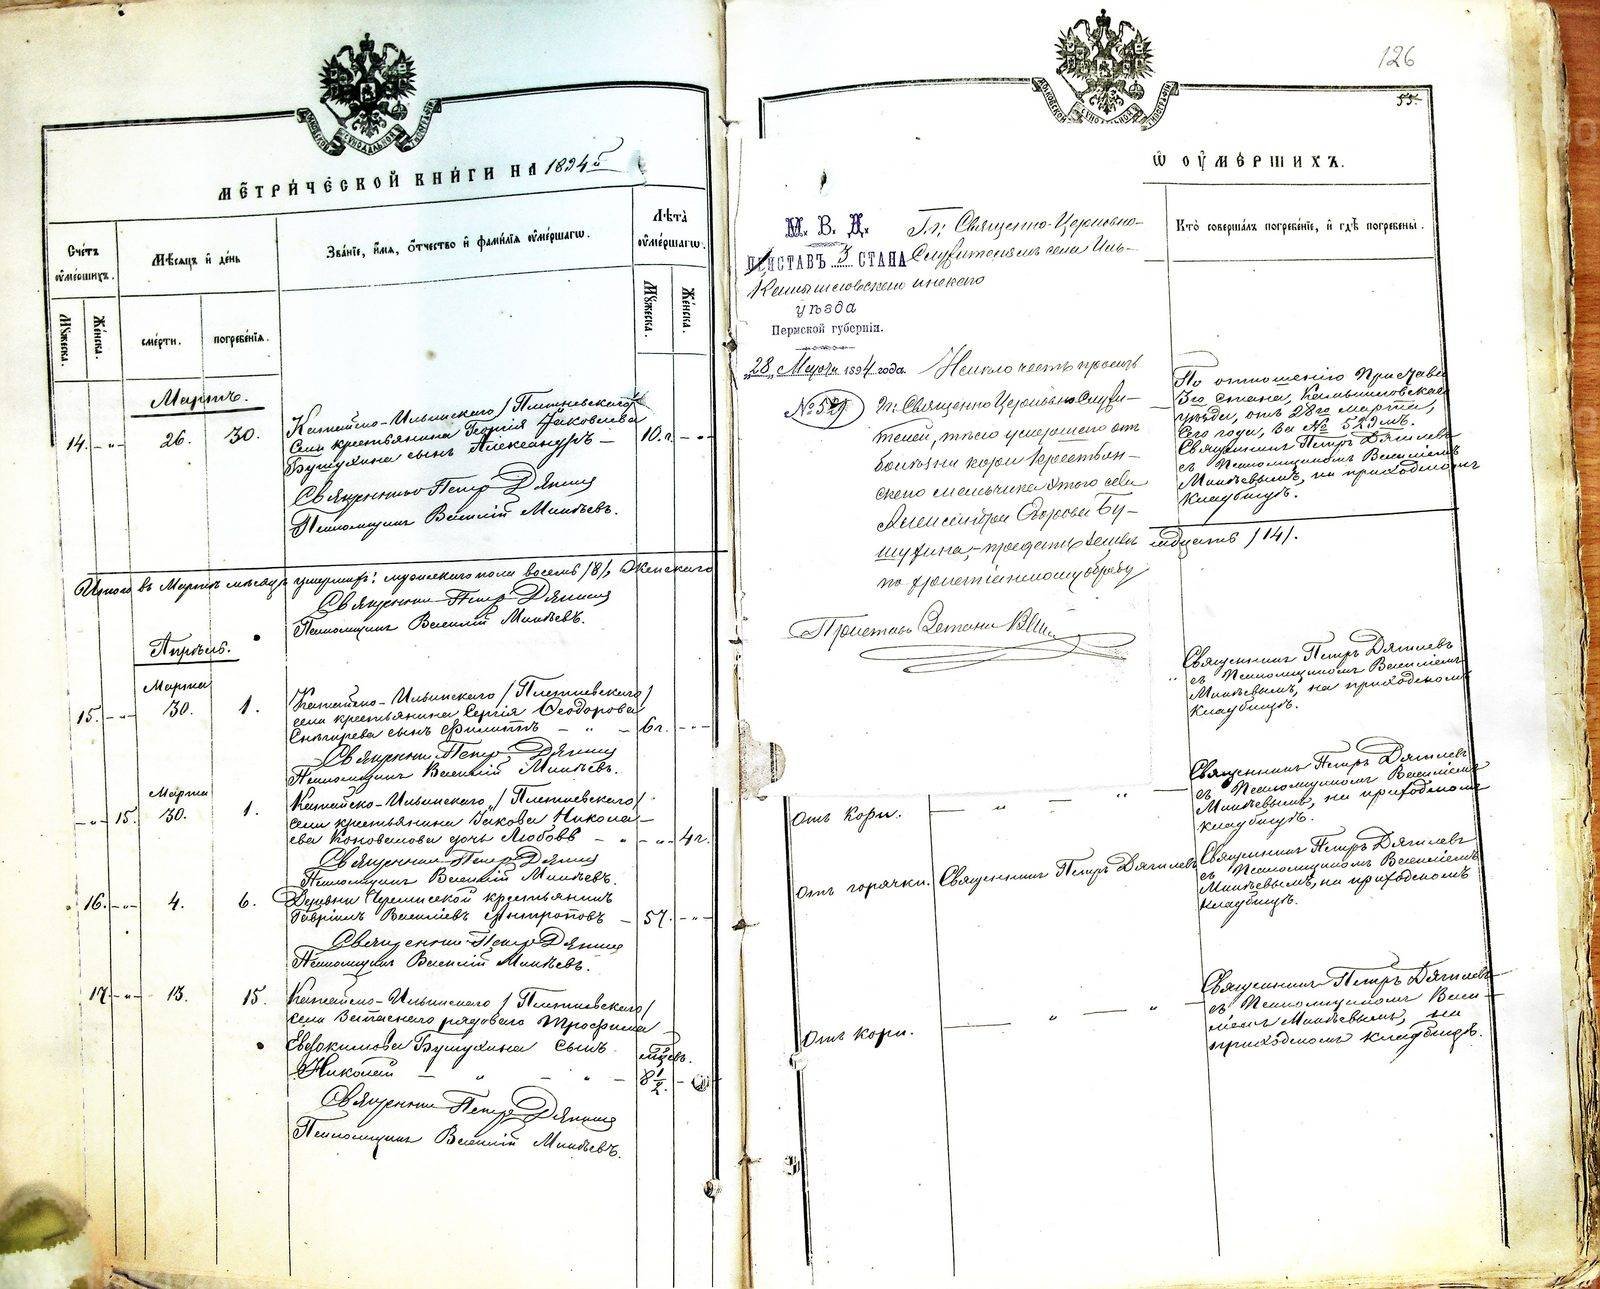 МЕТРИЧЕСКОЙ КНИГИ НА 1894й
Счетъ умершихъ.
Мужеска.
Женска.
Месяцъ и день
смерти.
погребенія.
Званіе, имя, отчество и фамилія умершаго.
Лѣта умершаго.
Мужеска.
Женска.
Мартъ.
14. - „ - 26. 30.
Катайско-Ильинскаго /Плетневскаго/
села крестьянина Георгія Яковлева
Бушухина сынъ Александръ — 10 г. - „ -
Священникъ Петръ Дягилев
Псаломщикъ Василій Михѣевъ.
Итого въ Мартѣ месяцѣ умершихъ: мужескаго пола восемь /8/, Женскаго
Священникъ Петръ Дягилев
Псаломщикъ Василій Михѣевъ.
Апрѣль.
Марта
15. - „ - 30. 1.
Катайско-Ильинскаго /Плетневскаго/
села крестьянина Сергія Ѳеодорова
сынъ Филиппъ — „ — 6 г. - „ -
Священникъ Петръ Дягилев
Псаломщикъ Василій Михѣевъ.
Марта
- „ - 15. 30. 1.
Катайско-Ильинскаго /Плетневскаго/
села крестьянина Іакова Никола-
ева Коновалова дочь Любовь - „ - „ - 4 г.
Священникъ Петръ Дягилев
Псаломщикъ Василій Михѣевъ.
16. - „ - 4. 6.
Деревни Черемисской крестьянинъ
Гавріилъ Василіевъ Антроповъ — 57. - „ -
Священникъ Петръ Дягилев
Псаломщикъ Василій Михѣевъ.
17 - „ - 13. 15.
Катайско-Ильинскаго /Плетневскаго/
села запаснаго рядоваго Трофима
Евдокимова Бушухина сынъ
Николай — „ — „ — 8 1/2
Священникъ Петръ Дягилев
Псаломщикъ Василій Михѣевъ.
126
55.
О УМЕРШИХЪ.
Кто совершалъ погребеніе, и гдѣ погребены.
М. В. Д.
ПРИСТАВЪ 3 СТАНА
Камышловскаго
уѣзда
Пермской губерніи.
„28„ Марта 1894 года.
№ 529
Г.г. Священно-Церковно-
Служителямъ села Иль-
инскаго
Имѣю честь просить
г.г. Священно Церковно Служи-
телей, тѣло умершаго отъ
болѣзни кори крестьян-
скаго мальчика этого села
Александра Егорова Бу-
шухина, предать землѣ
по христіанскому обряду
Приставъ 3 стана
По отношенію Пристава
3го стана, Камышловскаго
уѣзда, отъ 28го марта,
сего года, за № 529мъ.
Священникъ Петръ Дягилевъ
съ Псаломщикомъ Василіемъ
Михѣевымъ, на приходскомъ
кладбищѣ.
надцать /14/.
Священникъ Петръ Дягилевъ
съ Псаломщикомъ Василіемъ
Михѣевымъ, на приходскомъ
кладбищѣ.
Отъ кори. — „ — „ —
Священникъ Петръ Дягилевъ
съ Псаломщикомъ Василіемъ
Михѣевымъ, на приходскомъ
кладбищѣ.
Отъ горячки. Священникъ Петръ Дягилевъ
Священникъ Петръ Дягилевъ
съ Псаломщикомъ Василіемъ
Михѣевымъ, на приходскомъ
кладбищѣ.
Отъ кори. — „ — „ —
Священникъ Петръ Дягилевъ
съ Псаломщикомъ Васи-
ліемъ Михѣевымъ, на
приходскомъ кладбищѣ.